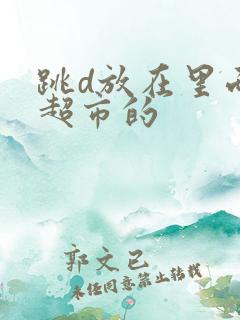 跳d放在里面
超市的
郭文已
未经同意禁止转载